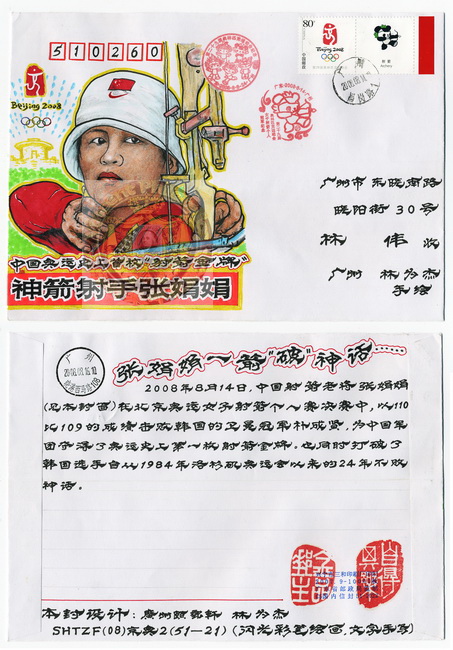 510260
80分
中国邮政
CHINA
Beijing 2008
Beijing 2008
广州
2008.08.14
广州市东晓南路
晓阳街30号
林伟 收
广州 林为杰
手绘
中国奥运史上首枚“射箭金牌”
神箭射手张娟娟
广州
张娟娟一箭“破”神话……
2008年8月14日，中国射箭老将张娟娟
(见本封面)在北京奥运女子射箭个人赛决赛中，以110
比109的成绩击败韩国的卫冕冠军朴成贤，为中国军
团夺得了奥运史上第一枚射箭金牌。也同时打破了
韩国选手自从1984年洛杉矶奥运会以来的24年不败
神话。
自得其乐
本封设计：广州颐郭轩 林为杰
SHTZF(08)京奥2(51-21)(闪光彩笔绘画，文字手写)